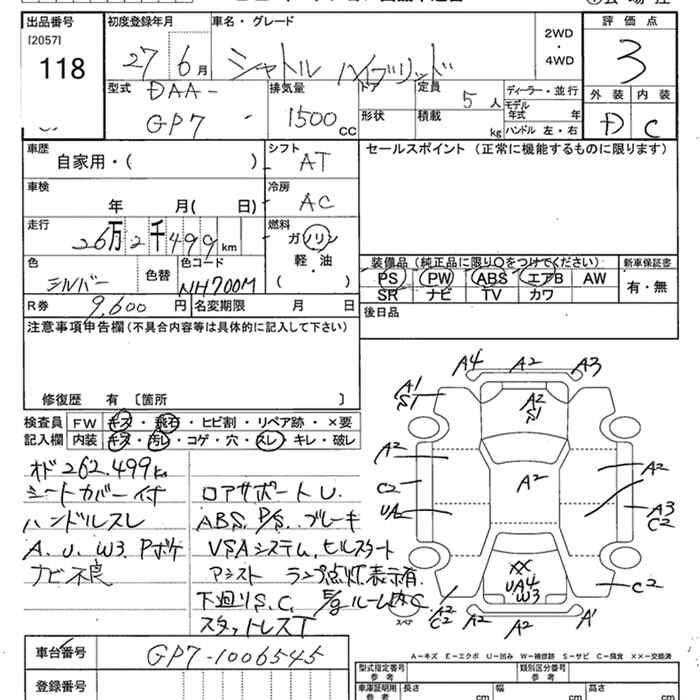 出品番号
[2057]
118
初度登録年月
27 6月
車名・グレード
シャトル ハイブリッド
2WD
・
4WD
評価点
3
外装 内装
D C
型式
DAA-
GP7
排気量
1500cc
ドア
形状
定員
5人
積載
kg
ディーラー・並行
モデル
年式 年
ハンドル 左・右
車歴
自家用・( )
シフト
AT
セールスポイント (正常に機能するものに限ります)
車検
年 月( 日)
冷房
AC
走行
26万2千499km
燃料
ガソリン
軽・油
( )
色
シルバー
色替
色コード
NH700M
装備品 (純正品に限り○をつけてください)
PS PW ABS エアB AW
SR ナビ TV カワ
新車保証書
有・無
R券 9,600円
名変期限 月 日
後日品
注意事項申告欄(不具合内容等は具体的に記入して下さい)
修復歴 有 〔箇所 〕
検査員
記入欄
FW キズ・飛石・ヒビ割・リペア跡・×要
内装 キズ・汚レ・コゲ・穴・スレ・キレ・破レ
オド262.499km
シートカバー付
ハンドルスレ
A.U.W3.Pボケ
ナビ不良
ロアサポートU.
ABS.P/S.ブレーキ
VSAシステム,ヒルスタート
アシスト ランプ点灯表示有.
下廻りS.C. E/gルーム内C
スタッドレスT
A4 A2 A3
A1
S1
A2
S1
A2
A2
A2
C2
UA2
A3
C2
XX
UA4
W3
C2
A2
C2
A2
A2
A1
スペア
A―キズ E―エクボ U―凹み W―補修跡 S―サビ C―腐食 ××―交換済
車台番号
GP7-1006545
登録番号
型式指定番号
参考
類別区分番号
参考
車庫証明用
参考
長さ
cm
幅
cm
高さ
cm